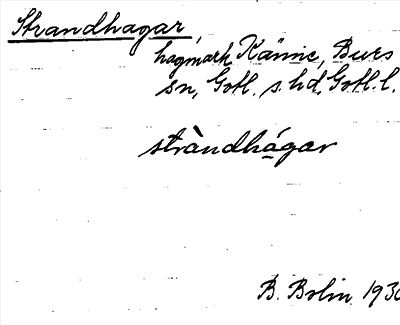 Strandhagar,
hagmark Känne, Burs
sn, Gotl. s. hd. Gotl. l.
stràndhágar
B. Bolin 1930